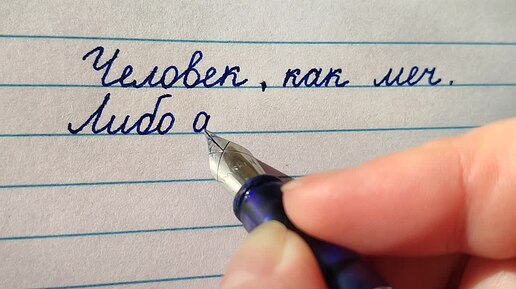 Человек, как меч.
Либо о